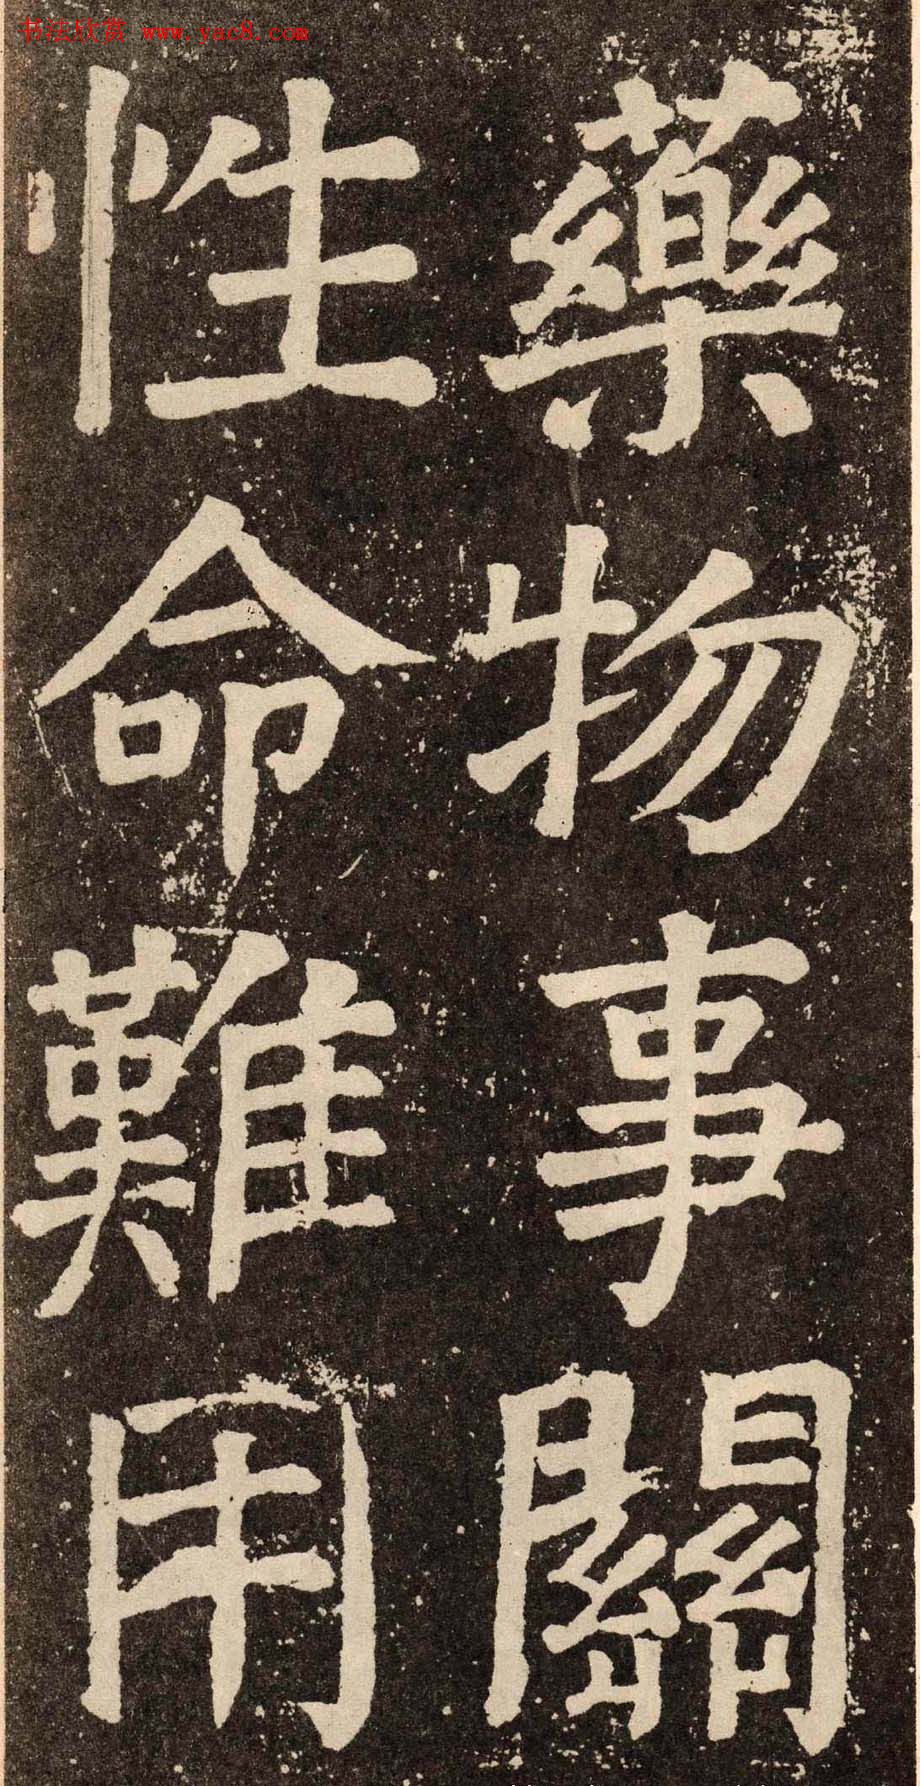 书法欣赏 www.yac8.com
藥物事關
性命難用